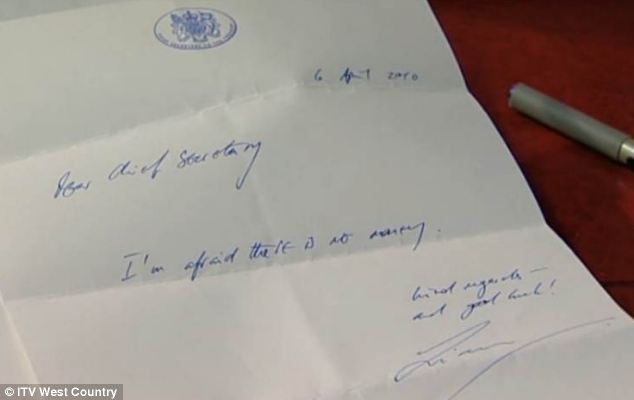 6 April 2010
Dear Chief Secretary
I'm afraid there is no money.
kind regards –
and good luck!
Liam
© ITV West Country